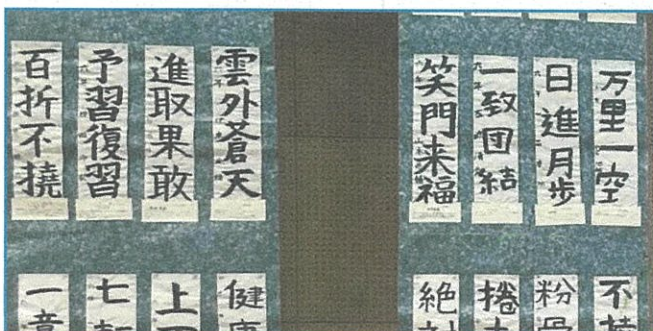 万里一空
日進月歩
一致団結
笑門来福
雲外蒼天
進取果敢
予習復習
百折不撓
不撓
粉骨
捲土
絶対
健康
上下
七転
一意